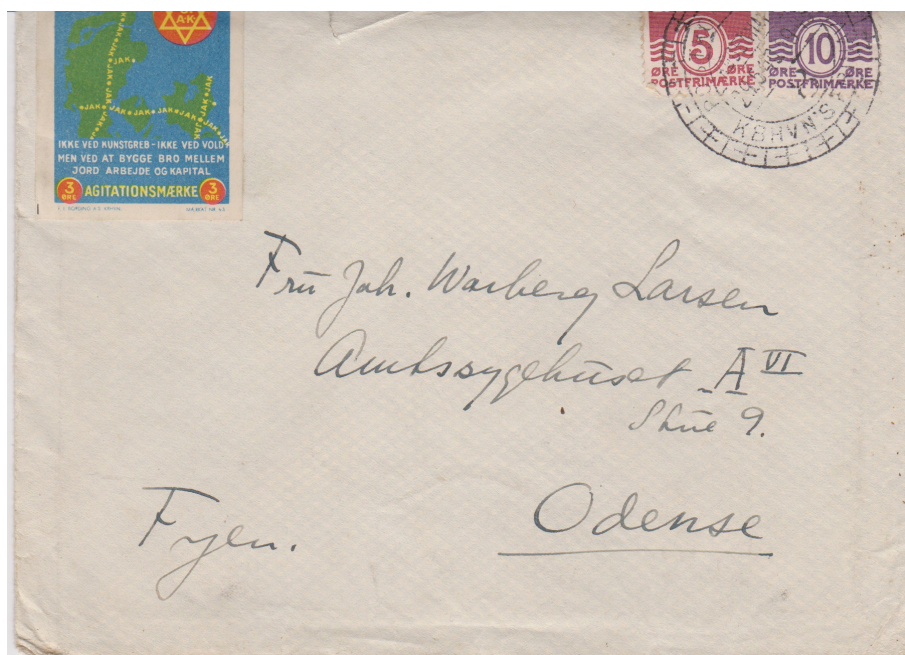 JAK
JAK
JAK
JAK
JAK
JAK JAK JAK JAK JAK JAK
JAK
IKKE VED KUNSTGREB - IKKE VED VOLD
MEN VED AT BYGGE BRO MELLEM
JORD ARBEJDE OG KAPITAL
3 ØRE AGITATIONSMÆRKE 3 ØRE
5 10
ØRE ØRE ØRE ØRE
POSTFRIMÆRKE POSTFRIMÆRKE
KBHVN'S
Fru Joh. Warberg Larsen
Amtssygehuset A VI
Stue 9.
Odense
Fyen.